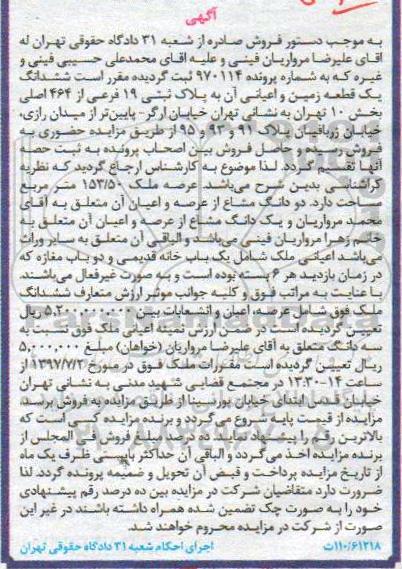 آگهی
به موجب دستور فروش صادره از شعبه ۳۱ دادگاه حقوقی تهران له
اقای علیرضا مرواریان فینی و علیه اقای محمدعلی حسیبی فینی و
غیره که به شماره پرونده ۹۷۰۱۱۴ ثبت گردیده مقرر است ششدانگ
یک قطعه زمین و اعیانی آن به پلاک ثبتی ۱۹ فرعی از ۴۶۴ اصلی
بخش ۱۰ تهران به نشانی تهران خیابان ارگر- پایین‌تر از میدان رازی،
خیابان زربافیان پلاک ۹۱ و ۹۳ و ۹۵ از طریق مزایده حضوری به
فروش رسیده و حاصل فروش بین اصحاب پرونده به ثبت حصا
آنها تقسیم گردد. لذا موضوع به کارشناس ارجاع گردید که نظریه
کراشناسی بدین شرح می‌باشد. عرصه ملک ۱۵۳/۵۰ متر مربع
مساحت دارد. دو دانگ مشاع از عرصه و اعیان آن متعلق به آقای
محمد مرواریان و یک دانگ مشاع از عرصه و اعیان آن متعلق به
خانم زهرا مرواریان فینی می‌باشد و الباقی آن متعلق به سایر وراث
می‌باشد اعیانی ملک شامل یک باب خانه قدیمی و دو باب مغازه که
در زمان بازدید هر ۶ بسته بوده است و به صورت غیرفعال می‌باشند
با عنایت به مراتب فوق و کلیه جوانب موثیر ارزش متعارف ششدانگ
ملک فوق شامل عرصه، اعیان و انشعابات بین ۵،۲۰۰،۰۰۰،۰۰۰ ریال
تعیین گردیده است در ضمن ارزش نصبه اعیانی ملک فوق نسبت به
سه دانگ متعلق به آقای علیرضا مرواریان (خواهان) مبلغ ۵،۰۰۰،۰۰۰
ریال تعیین گردیده است مقررات ملک فوق در مورخ ۱۳۹۷/۷/۲ از
ساعت ۱۴-۱۳:۳۰ در مجتمع قضایی شهید مدنی به نشانی تهران
خیابان قدس ابتدای خیابان پورسینا از طریق مزایده به فروش برسد.
مزایده از قیمت پایه شروع می‌گردد و برنده مزایده کسی است که
بالاترین رقم را پیشنهاد نماید. ده درصد مبلغ فروش فی المجلس از
برنده مزایده اخذ می‌گردد و الباقی آن حداکثر بایستی ظرف یک ماه
از تاریخ مزایده پرداخت و قبض آن تحویل و ضمیمه پرونده گردد. لذا
ضرورت دارد متقاضیان شرکت در مزایده بین ده درصد رقم پیشنهادی
خود را به صورت چک تضمین شده همراه داشته باشند در غیر این
صورت از شرکت در مزایده محروم خواهند شد.
۱۱۰/۶۱۲۱۸ت اجرای احکام شعبه ۳۱ دادگاه حقوقی تهران